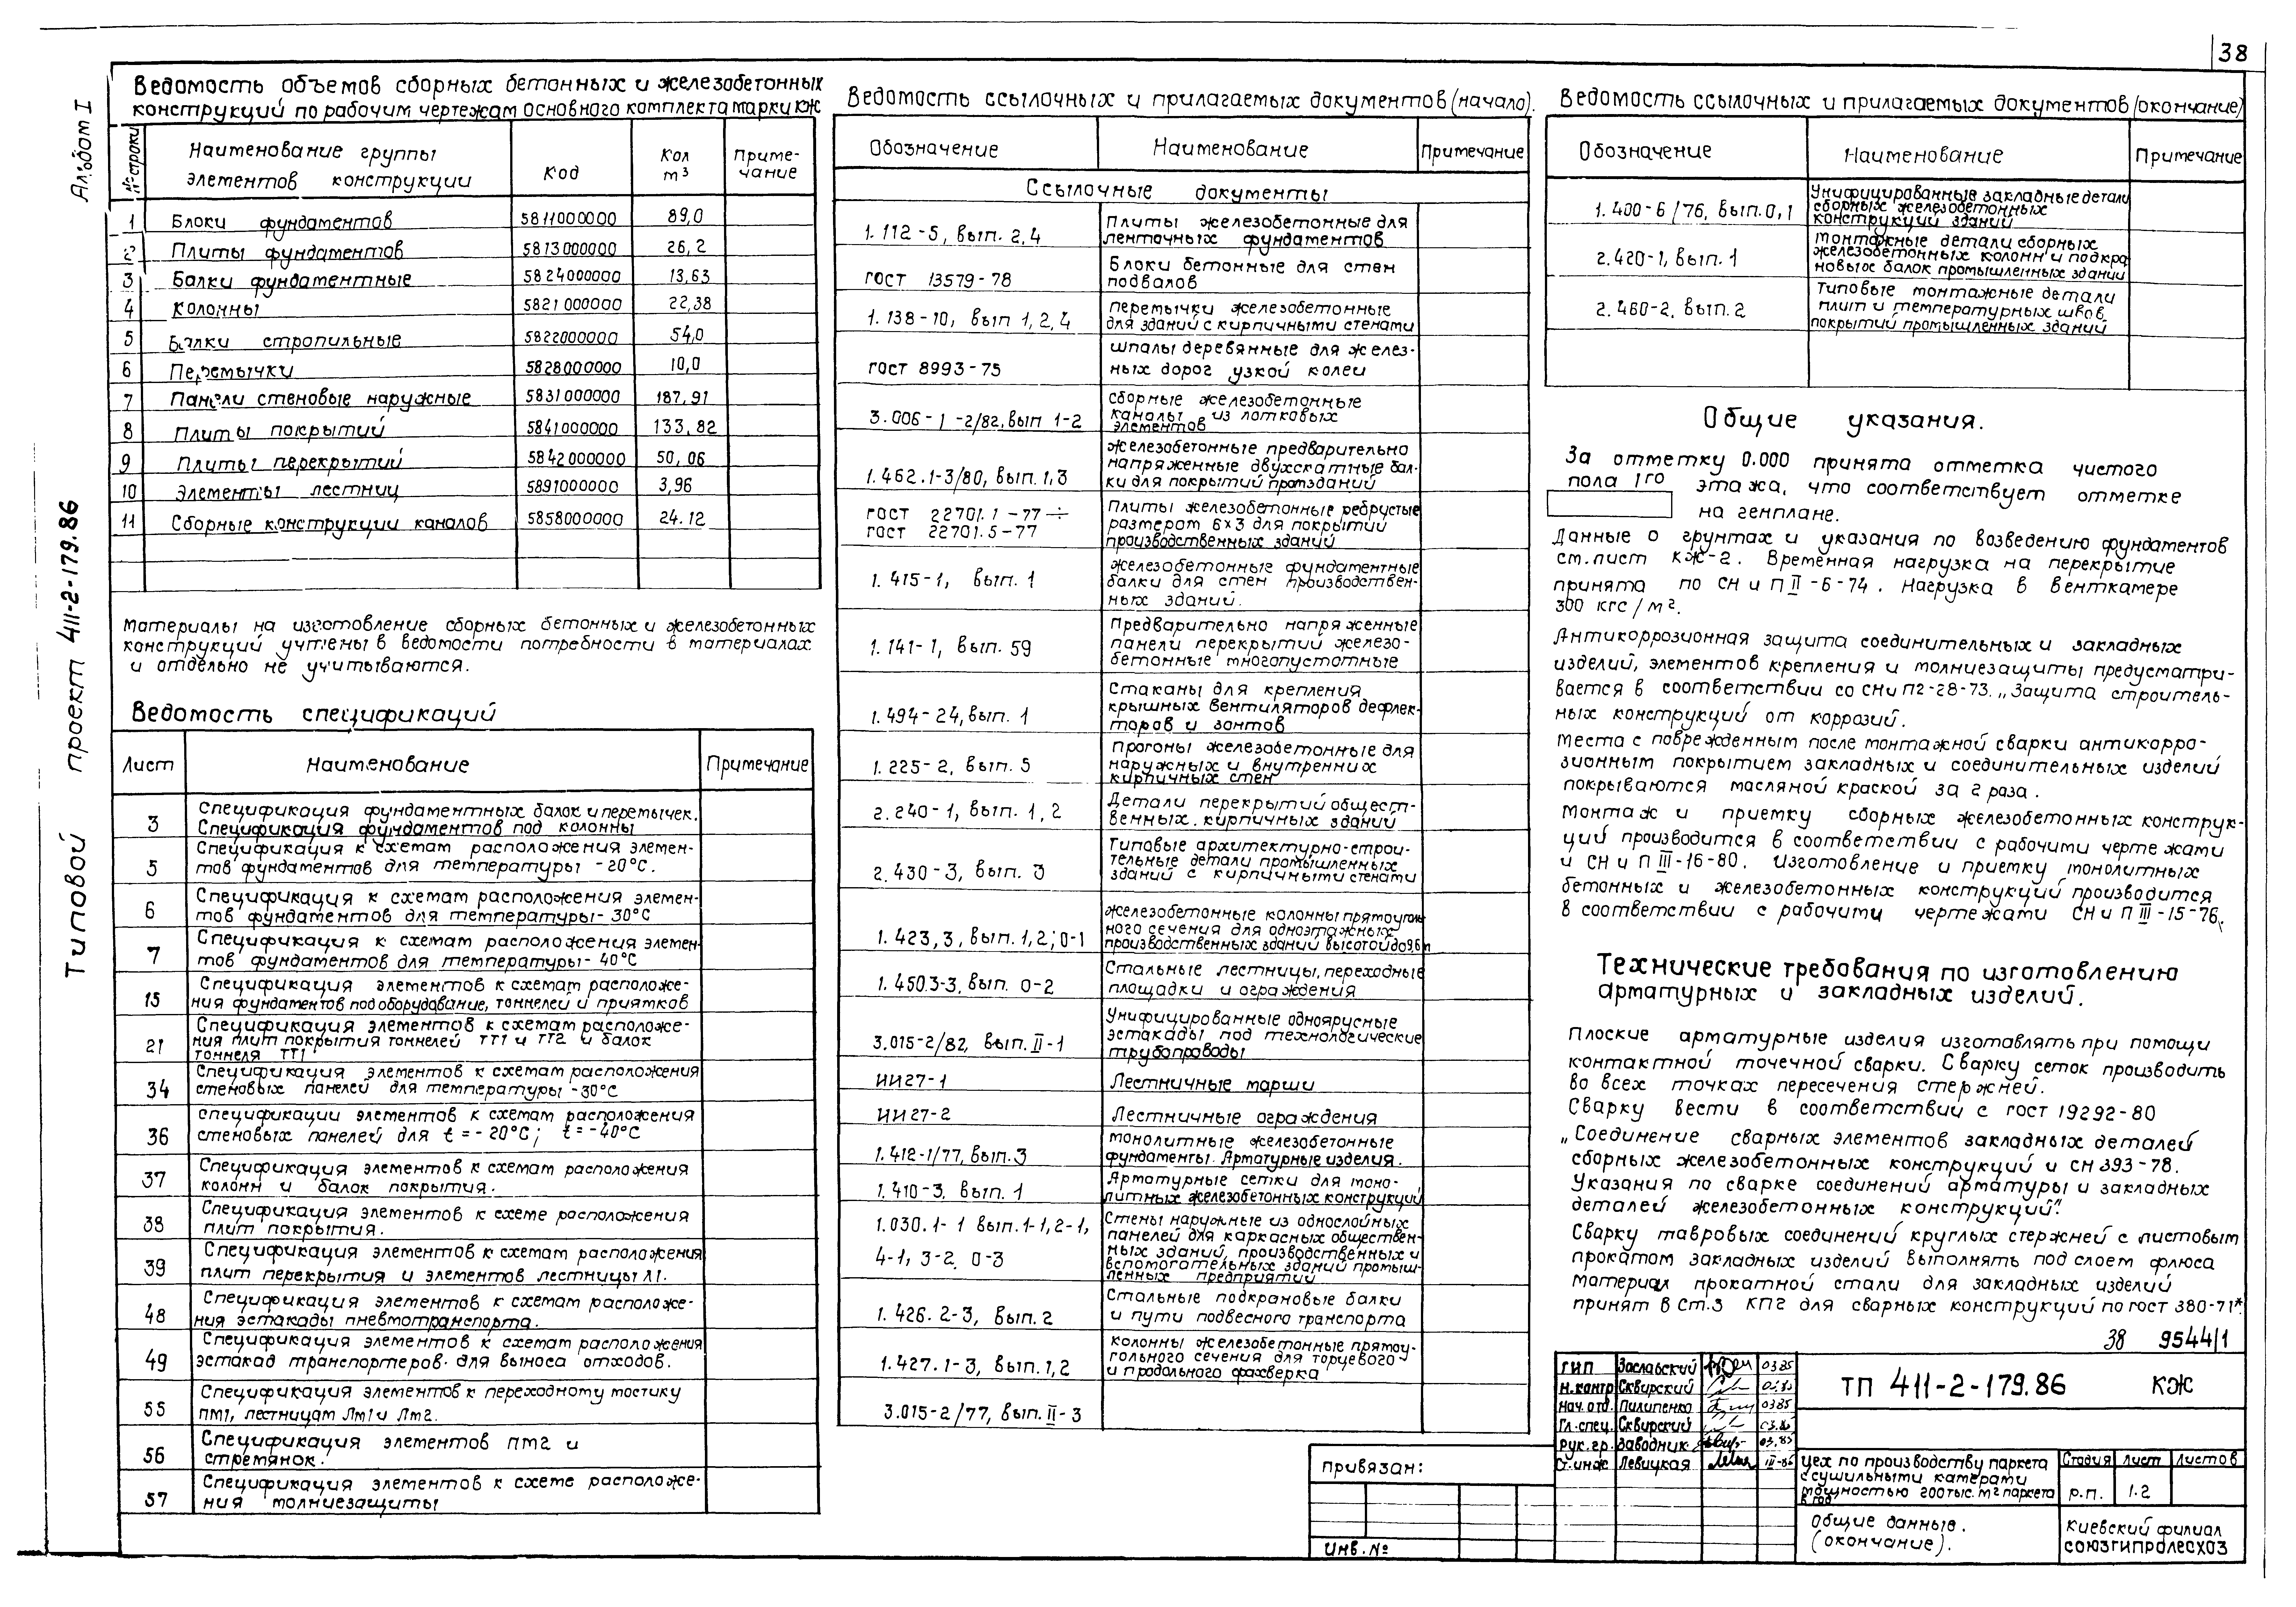 38
Альбом I
Типовой проект 411-2-179.86
Ведомость объемов сборных бетонных и железобетонных
конструкций по рабочим чертежам основного комплекта марки КЖ
№№ строки
Наименование группы
элементов конструкции
Код
Кол
м³
Приме-
чание
1 Блоки фундаментов 5811000000 89,0
2 Плиты фундаментов 5813000000 26,2
3 Балки фундаментные 5824000000 13,63
4 Колонны 5821000000 22,38
5 Балки стропильные 5822000000 54,0
6 Перемычки 5828000000 10,0
7 Панели стеновые наружные 5831000000 187,91
8 Плиты покрытий 5841000000 133,82
9 Плиты перекрытий 5842000000 50,06
10 Элементы лестниц 5891000000 3,96
11 Сборные конструкции каналов 5858000000 24.12
Материалы на изготовление сборных бетонных и железобетонных
конструкций учтены в ведомости потребности в материалах
и отдельно не учитываются.
Ведомость спецификаций
Лист Наименование Примечание
3 Спецификация фундаментных балок и перемычек.
Спецификация фундаментов под колонны
5 Спецификация к схемам расположения элемен-
тов фундаментов для температуры -20°С.
6 Спецификация к схемам расположения элемен-
тов фундаментов для температуры -30°С
7 Спецификация к схемам расположения элемен-
тов фундаментов для температуры -40°С
15 Спецификация элементов к схемам расположе-
ния фундаментов под оборудование, тоннелей и приямков
21 Спецификация элементов к схемам расположе-
ния плит покрытия тоннелей ТТ1 и ТТ2 и балок
тоннеля ТТ1
34 Спецификация элементов к схемам расположения
стеновых панелей для температуры -30°С
36 спецификации элементов к схемам расположения
стеновых панелей для t=-20°С; t=-40°С
37 Спецификация элементов к схемам расположения
колонн и балок покрытия.
38 Спецификация элементов к схеме расположения
плит покрытия.
39 Спецификация элементов к схемам расположения
плит перекрытия и элементов лестницы Л1.
48 Спецификация элементов к схемам расположе-
ния эстакады пневмотранспорта.
49 Спецификация элементов к схемам расположения
эстакад транспортеров для выноса отходов.
55 Спецификация элементов к переходному мостику
ПМ1, лестницам ЛМ1 и ЛМ2.
56 Спецификация элементов ПМ2 и
стремянок.
57 Спецификация элементов к схеме расположе-
ния молниезащиты
Ведомость ссылочных и прилагаемых документов (начало).
Обозначение Наименование Примечание
Ссылочные документы
1.112-5, вып. 2,4 Плиты железобетонные для
ленточных фундаментов
ГОСТ 13579-78 Блоки бетонные для стен
подвалов
1.138-10, вып 1,2,4 перемычки железобетонные
для зданий с кирпичными стенами
ГОСТ 8993-75 шпалы деревянные для желез-
ных дорог узкой колеи
3.006-1-2/82, вып 1-2 сборные железобетонные
каналы из лотковых
элементов
1.462.1-3/80, вып. 1,3 железобетонные предварительно
напряженные двухскатные бал-
ки для покрытий промзданий
ГОСТ 22701.1-77 ÷
ГОСТ 22701.5-77
Плиты железобетонные ребристые
размером 6×3 для покрытий
производственных зданий
1.415-1, вып. 1 железобетонные фундаментные
балки для стен производствен-
ных зданий.
1.141-1, вып. 59 Предварительно напряженные
панели перекрытий железо-
бетонные многопустотные
1.494-24, вып. 1 Стаканы для крепления
крышных вентиляторов дефлек-
торов и зонтов
1.225-2, вып. 5 Прогоны железобетонные для
наружных и внутренних
кирпичных стен
2.240-1, вып. 1,2 Детали перекрытий общест-
венных кирпичных зданий
2.430-3, вып. 3 Типовые архитектурно-строи-
тельные детали промышленных
зданий с кирпичными стенами
1.423,3, вып. 1,2; 0-1 железобетонные колонны прямоуголь
ного сечения для одноэтажных
производственных зданий высотой до 9,6 м
1.450.3-3, вып. 0-2 Стальные лестницы, переходные
площадки и ограждения
3.015-2/82, вып. II-1 Унифицированные одноярусные
эстакады под технологические
трубопроводы
ИИ27-1 Лестничные марши
ИИ27-2 Лестничные ограждения
1.412-1/77, вып. 3 монолитные железобетонные
фундаменты. Арматурные изделия.
1.410-3, вып. 1 Арматурные сетки для моно-
литных железобетонных конструкций
1.030.1-1 вып. 1-1, 2-1,
4-1, 3-2, 0-3
Стены наружные из однослойных
панелей для каркасных обществен-
ных зданий, производственных и
вспомогательных зданий промыш-
ленных предприятий
1.426.2-3, вып. 2 Стальные подкрановые балки
и пути подвесного транспорта
1.427.1-3, вып. 1,2 колонны железобетонные прямоу-
гольного сечения для торцевого
и продольного фахверка
3.015-2/77, вып. II-3
Ведомость ссылочных и прилагаемых документов (окончание)
Обозначение Наименование Примечание
1.400-6/76, вып. 0,1 Унифицированные закладные детали
сборных железобетонных
конструкций зданий
2.420-1, вып. 1 монтажные детали сборных
железобетонных колонн и подкра
новых балок промышленных зданий
2.460-2, вып. 2 Типовые монтажные детали
плит и температурных швов
покрытий промышленных зданий
Общие указания.
За отметку 0.000 принята отметка чистого
пола 1го этажа, что соответствует отметке
на генплане.
Данные о грунтах и указания по возведению фундаментов
см. лист КЖ-2. Временная нагрузка на перекрытие
принята по СНиП II-6-74. Нагрузка в венткамере
300 кгс/м².
Антикоррозионная защита соединительных и закладных
изделий, элементов крепления и молниезащиты предусматри-
вается в соответствии со СНиП2-28-73. „Защита строитель-
ных конструкций от коррозий.
места с поврежденным после монтажной сварки антикорро-
зионным покрытием закладных и соединительных изделий
покрываются масляной краской за 2 раза.
Монтаж и приемку сборных железобетонных конструк-
ций производится в соответствии с рабочими чертежами
и СНиП III-16-80. Изготовление и приемку монолитных
бетонных и железобетонных конструкций производится
в соответствии с рабочими чертежами СНиП III-15-76.
Технические требования по изготовлению
арматурных и закладных изделий.
Плоские арматурные изделия изготовлять при помощи
контактной точечной сварки. Сварку сеток производить
во всех точках пересечения стержней.
Сварку вести в соответствий с гост 19292-80
„Соединение сварных элементов закладных деталей
сборных железобетонных конструкций и СН 393-78.
Указания по сварке соединений арматуры и закладных
деталей железобетонных конструкций".
Сварку тавровых соединений круглых стержней с листовым
прокатом закладных изделий выполнять под слоем флюса
материал прокатной стали для закладных изделий
принят в Ст.3 КП2 для сварных конструкций по гост 380-71*.
38 9544/1
ГИП Заславский 03.85
Н.контр Сквирский 03.85
Нач.отд. Пилипенко 03.85
Гл.спец. Сквирский 03.85
Рук.гр. Заводник 03.85
Ст.инж Левицкая
ТП 411-2-179.86 КЖ
цех по производству паркета
с сушильными камерами
мощностью 200 тыс. м² паркета
в год
Стадия Лист Листов
р.п. 1.2
Общие данные.
(окончание).
Киевский филиал
СОЮЗГИПРОЛЕСХОЗ
привязан:
Инв. №